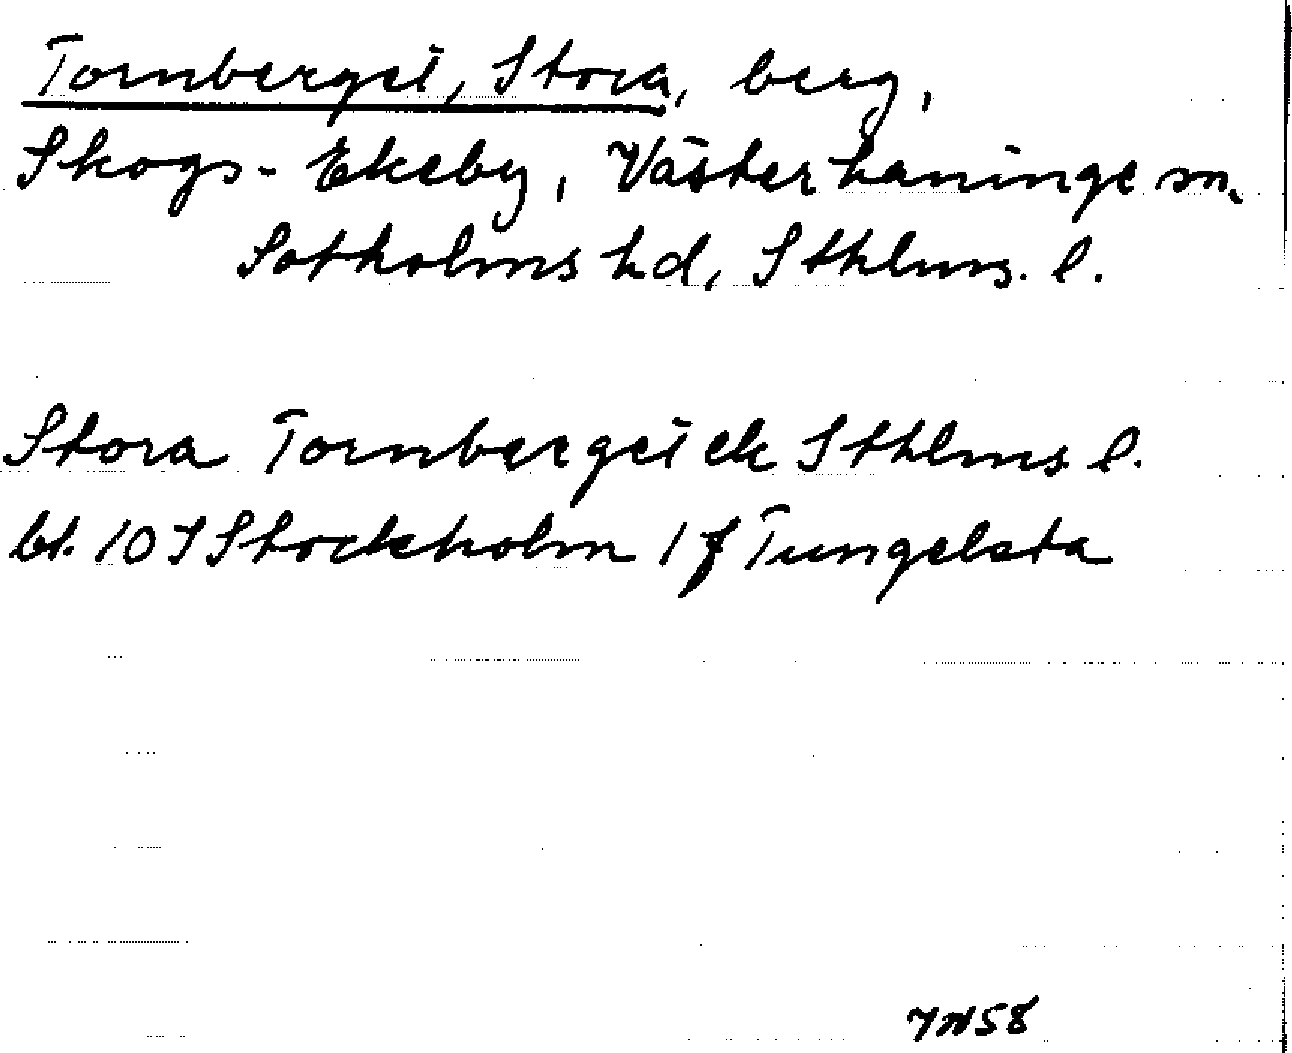 Tornberget, Stora, berg,
Skogs-Ekeby, Västerhaninge sn.
Sotholms hd, Sthlms. l.
Stora Tornberget ek Sthlms l.
bl. 10 I Stockholm 1 f Tungelsta